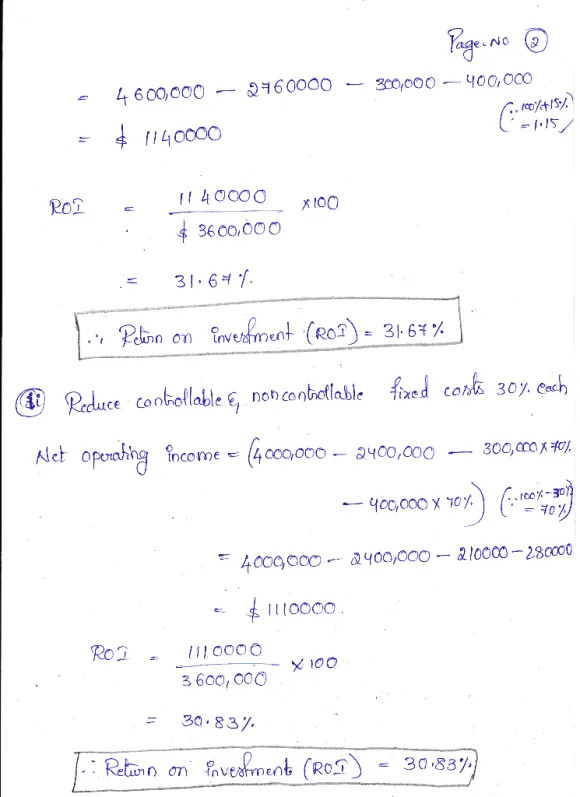 Page. No ②
= 4600,000 — 2760000 — 300,000 — 400,000
(∵ 100%+15%
= 1.15)
= $ 1140000
ROI = 1140000 / $ 3600,000 ×100
= 31.67%.
∴ Return on investment (ROI) = 31.67%
ⓘⓘ Reduce controllable & noncontrollable fixed costs 30% each
Net operating income = (4000,000 — 2400,000 — 300,000 × 70%
— 400,000 × 70%) (∵ 100%-30%
= 70%)
= 4000,000 — 2400,000 — 210000 — 280000
= $ 1110000.
ROI = 1110000 / 3600,000 × 100
= 30.83%.
∴ Return on investment (ROI) = 30.83%